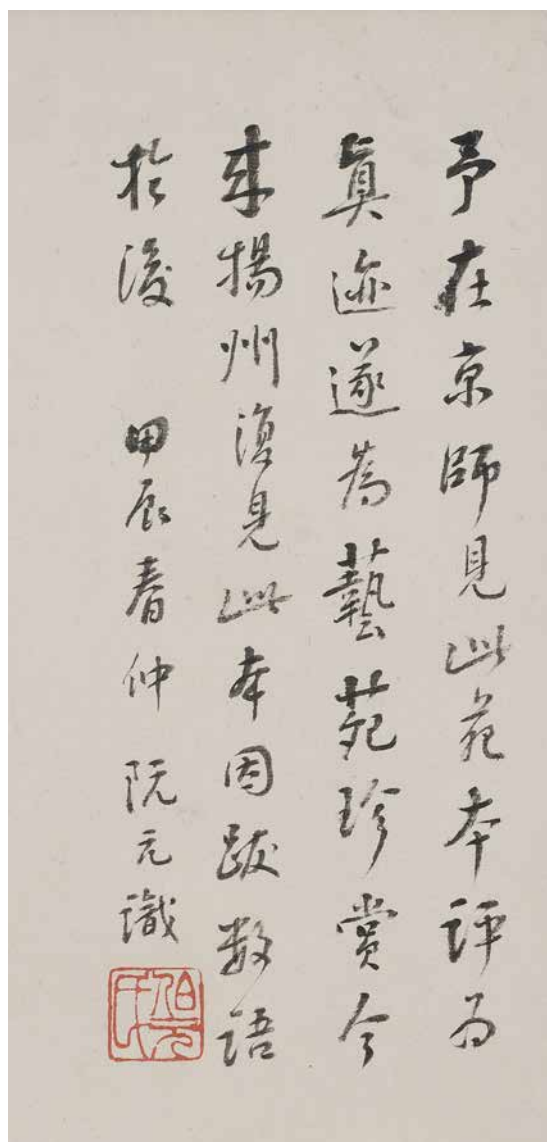 予在京師見此苑本評為
真迹遂為藝苑珍賞今
來揚州復見此本因跋數語
於後 甲辰春仲 阮元識
伯元氏